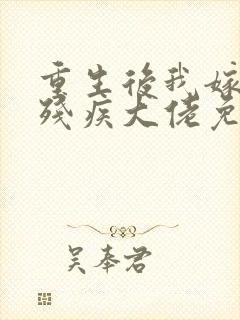 重生後我嫁
殘疾大佬免
吳奉君